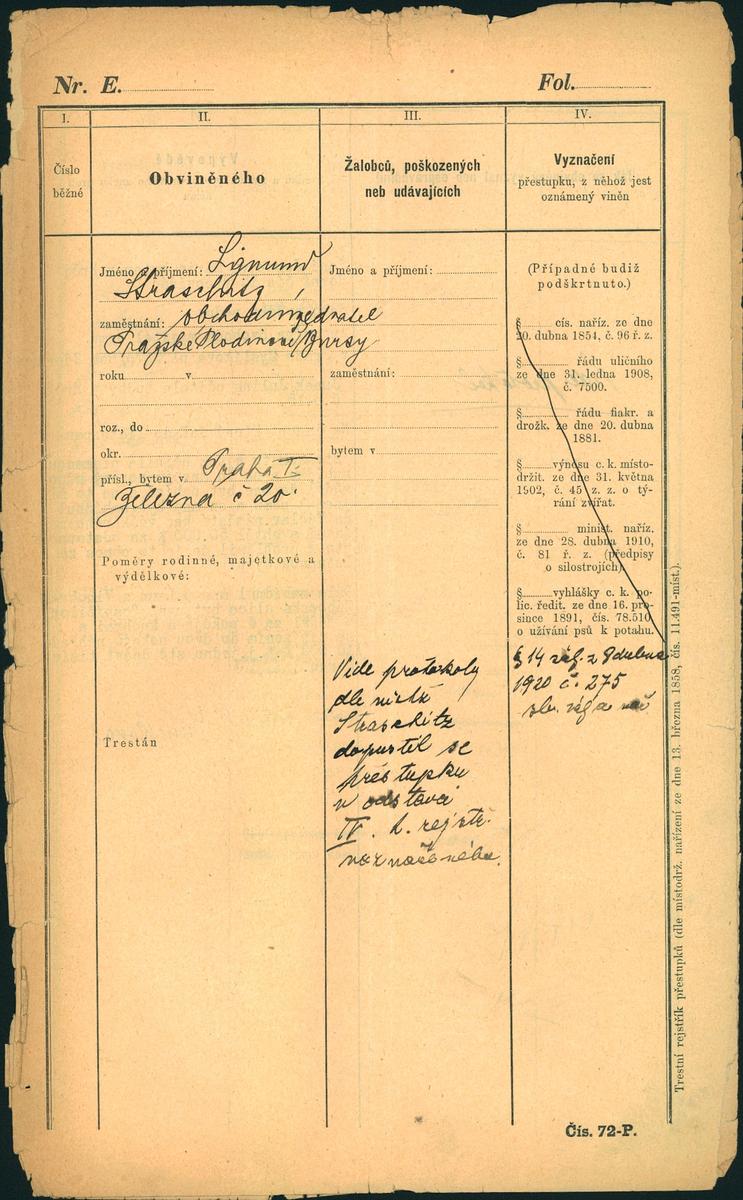 Nr. E.
Fol.
I.
Číslo
běžné
II.
Obviněného
Jméno a příjmení: Sigmund
Straschitz,
zaměstnání: obchodník, jednatel
Pražské Plodinové Bursy
roku v
roz., do
okr.
přísl., bytem v Praha I.
Železná č 20.
Poměry rodinné, majetkové a
výdělkové:
Trestán
III.
Žalobců, poškozených
neb udávajících
Jméno a příjmení:
zaměstnání:
bytem v
Vide protokoly
dle nichž
Straschitz
dopustil se
přestupku
v odstavci
IV. t. rejstř.
naznačeného.
IV.
Vyznačení
přestupku, z něhož jest
oznámený viněn
(Případné budiž
podškrtnuto.)
§ cis. naříz. ze dne
20. dubna 1854, č. 96 ř. z.
§ řádu uličního
ze dne 31. ledna 1908,
č. 7500.
§ řádu fiakr. a
drožk. ze dne 20. dubna
1881.
§ výnosu c. k. místo-
držit. ze dne 31. května
1902, č. 45 z. z. o tý-
rání zvířat.
§ minist. naříz.
ze dne 28. dubna 1910,
č. 81 ř. z. (předpisy
o silostrojích).
§ vyhlášky c. k. po-
lic. ředit. ze dne 16. pro-
since 1891, čís. 78.510
o užívání psů k potahu.
§ 14 zák. z 9 dubna
1920 č. 275
sb. zák. a nař
Trestní rejstřík přestupků (dle místodrž. nařízení ze dne 13. března 1858, čís. 11.491-míst.).
Čís. 72-P.